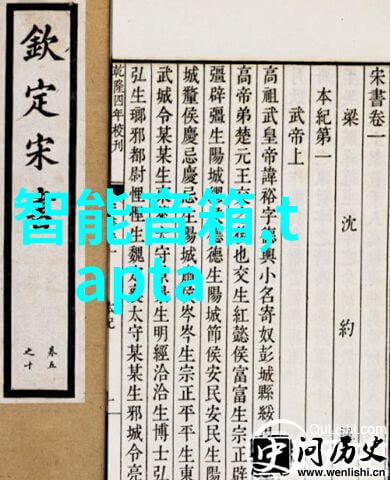 欽定宋書
宋書卷一
梁 沈 約
本紀第一
武帝上
高祖武皇帝諱裕字德輿小名寄奴彭城縣綏
高帝弟楚元王交也交生紅懿侯富富生宗正辟
彊辟彊生陽城德德生陽城節侯安民安民生陽
城釐侯慶忌慶忌生陽城侯岑岑生宗正平平生東
武城令某某生東守某生明經洽洽生博士弘
弘生瑯邪都尉悝悝生魏太守某某生邪城令亮
乾隆四年校刊
本紀
一
智能音箱,t
apta
QuLishi.com
问历史
www.wenlishi.cn